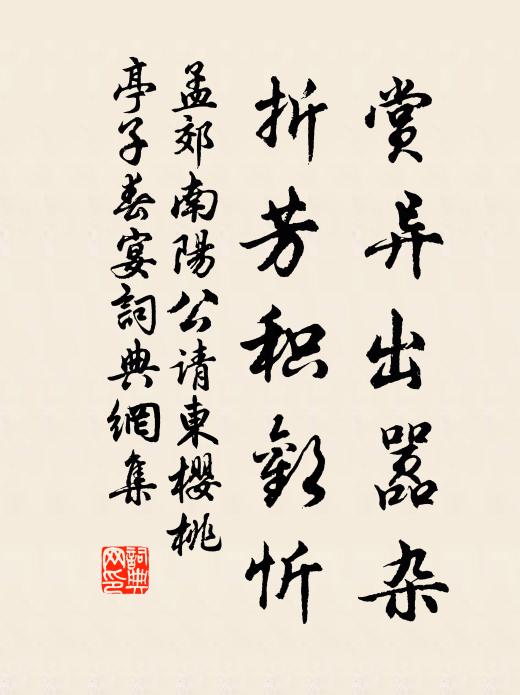 赏异出嚣杂
折芳积歡忻
孟郊南陽公请東櫻桃
亭子春宴詞典網集
詞典网印